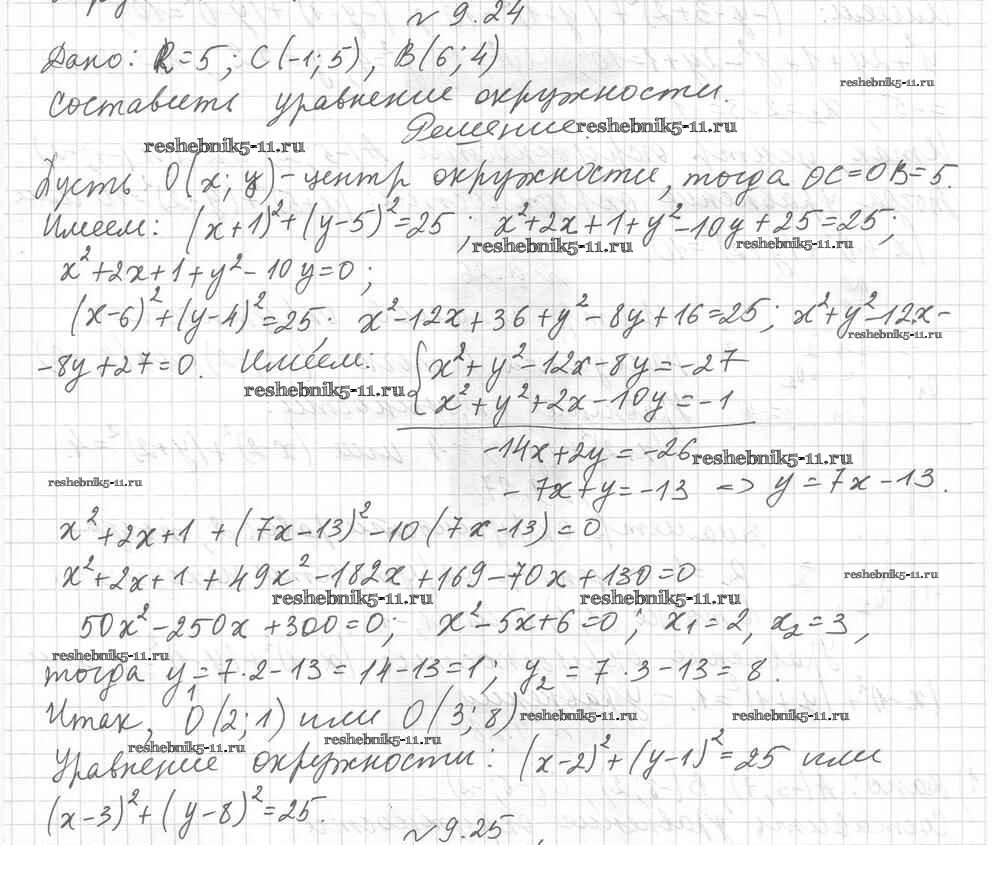 № 9.24
Дано: R=5; C(-1;5), B(6;4) reshebnik5-11.ru
составить уравнение окружности.
Решение. reshebnik5-11.ru
reshebnik5-11.ru
Пусть O(x; y) - центр окружности, тогда OC=OB=5.
Имеем: (x+1)²+(y-5)²=25; x²+2x+1+y²-10y+25=25;
reshebnik5-11.ru reshebnik5-11.ru
x²+2x+1+y²-10y=0;
(x-6)²+(y-4)²=25. x²-12x+36+y²-8y+16=25; x²+y²-12x-
reshebnik5-11.ru
-8y+27=0. Имеем: { x²+y²-12x-8y=-27
reshebnik5-11.ru x²+y²+2x-10y=-1
-14x+2y=-26 reshebnik5-11.ru
reshebnik5-11.ru -7x+y=-13 => y=7x-13.
x²+2x+1+(7x-13)²-10(7x-13)=0
x²+2x+1+49x²-182x+169-70x+130=0 reshebnik5-11.ru
reshebnik5-11.ru reshebnik5-11.ru
50x²-250x+300=0; x²-5x+6=0; x₁=2, x₂=3,
reshebnik5-11.ru
тогда y₁=7·2-13=14-13=1; y₂=7·3-13=8.
Итак, O(2;1) или O(3;8) reshebnik5-11.ru reshebnik5-11.ru
reshebnik5-11.ru reshebnik5-11.ru
Уравнение окружности: (x-2)²+(y-1)²=25 или
(x-3)²+(y-8)²=25.
№ 9.25